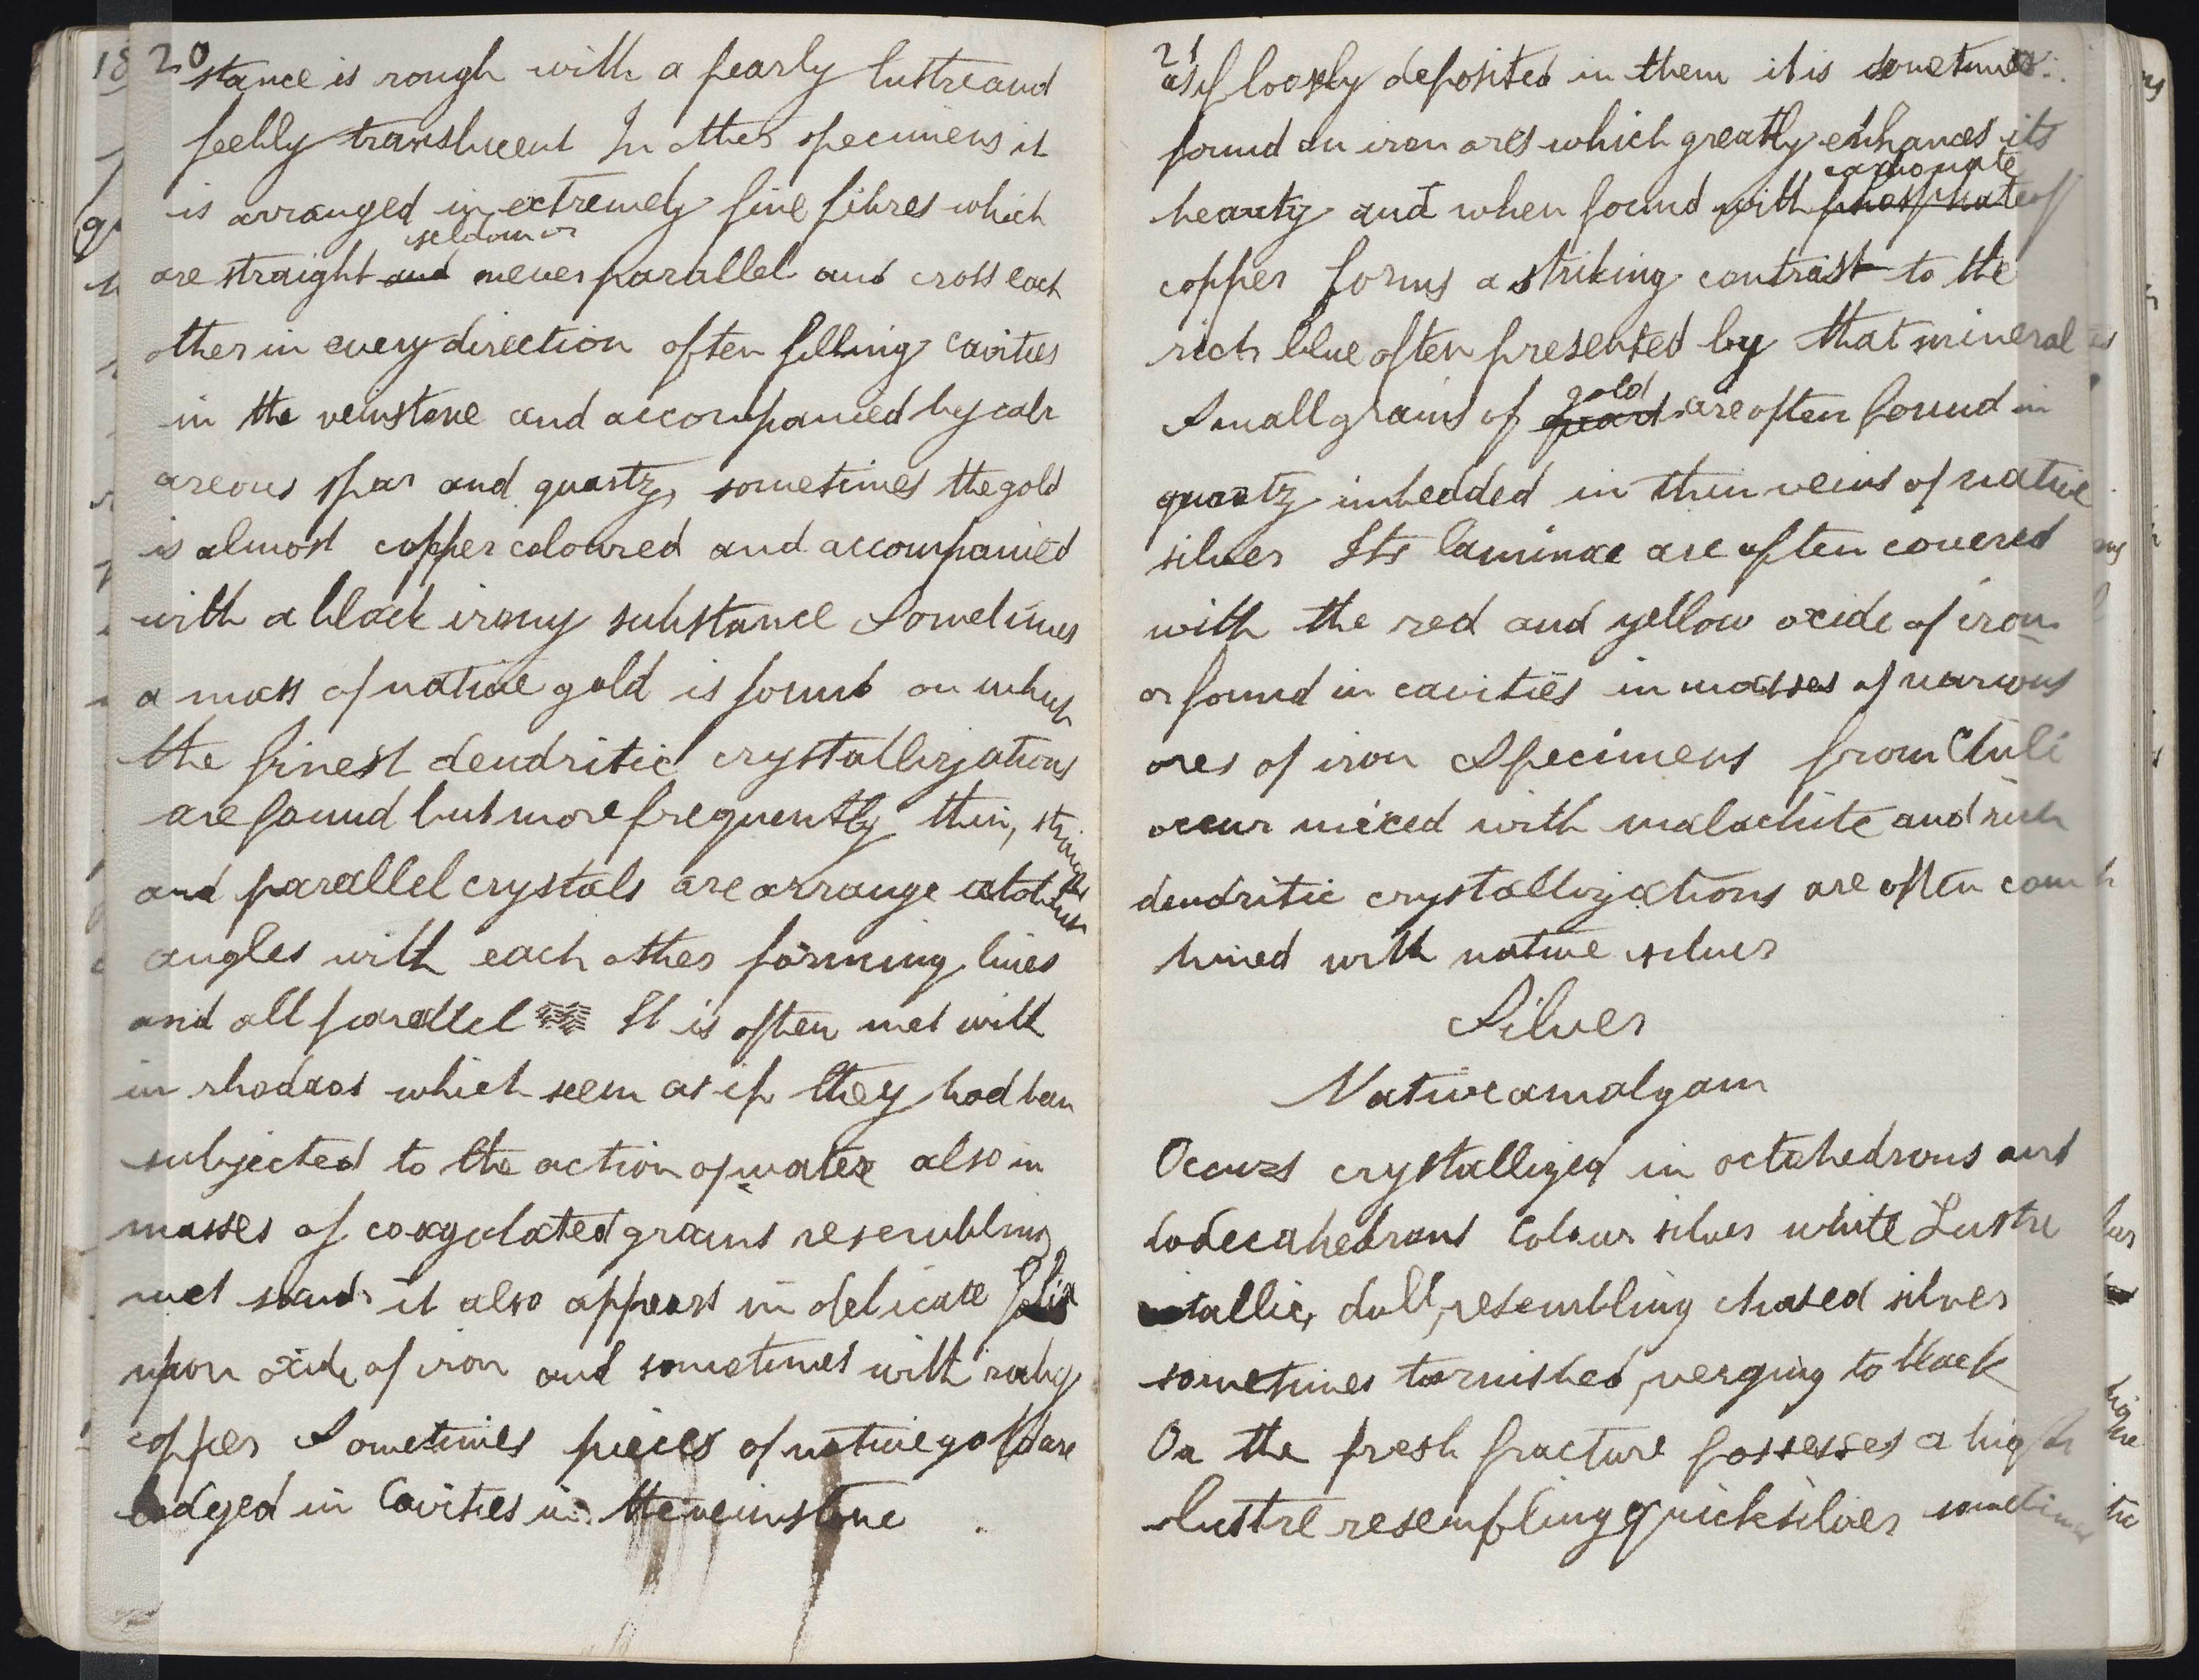 20
stance is rough with a pearly lustre and
feebly translucent In other specimens it
is arranged in extremely fine fibres which
seldom or
are straight and never parallel and cross each
other in every direction often filling cavities
in the veinstone and accompanied by calc
areous spar and quartz, sometimes the gold
is almost copper coloured and accompanied
with a black irony substance Sometimes
a mass of native gold is found on which
the finest dendritic crystallizations
are found but more frequently thin, straight
and parallel crystals are arrange at obtuse
angles with each other forming lines
and all parallel It is often met with
in which seem as if they had been
subjected to the action of water also in
masses of coagulated grains resembling
wet sand it also appears in delicate folia
upon oxide of iron and sometimes with
copper Sometimes pieces of native gold are
lodged in Cavities in the veinstone
21
as if loosely deposited in them it is sometimes
found on iron ores which greatly enhances its
carbonate
beauty and when found with phosphate of
copper forms a striking contrast to the
rich blue often presented by that mineral
gold
Small grains of are often found in
quartz imbedded in thin veins of native
silver Its laminae are often covered
with the red and yellow oxide of iron
or found in cavities in masses of various
ores of iron Specimens from Chili
occur mixed with malachite and rich
dendritic crystallizations are often com
bined with native silver
Silver
Native amalgam
Occurs crystallized in octahedrons and
dodecahedrons Colour silver white Lustre
tallic, dull, resembling chased silver
sometimes tarnished, verging to black
On the fresh fracture possesses a high
lustre resembling quicksilver sometimes